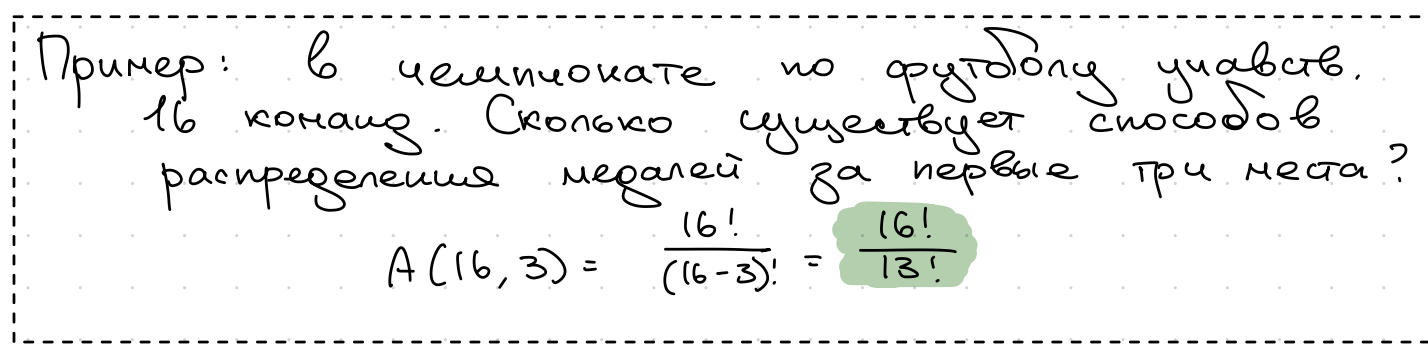 Пример: в чемпионате по футболу участв.
16 команд. Сколько существует способов
распределения медалей за первые три места?
A(16, 3) = 16! / (16-3)! = 16! / 13!